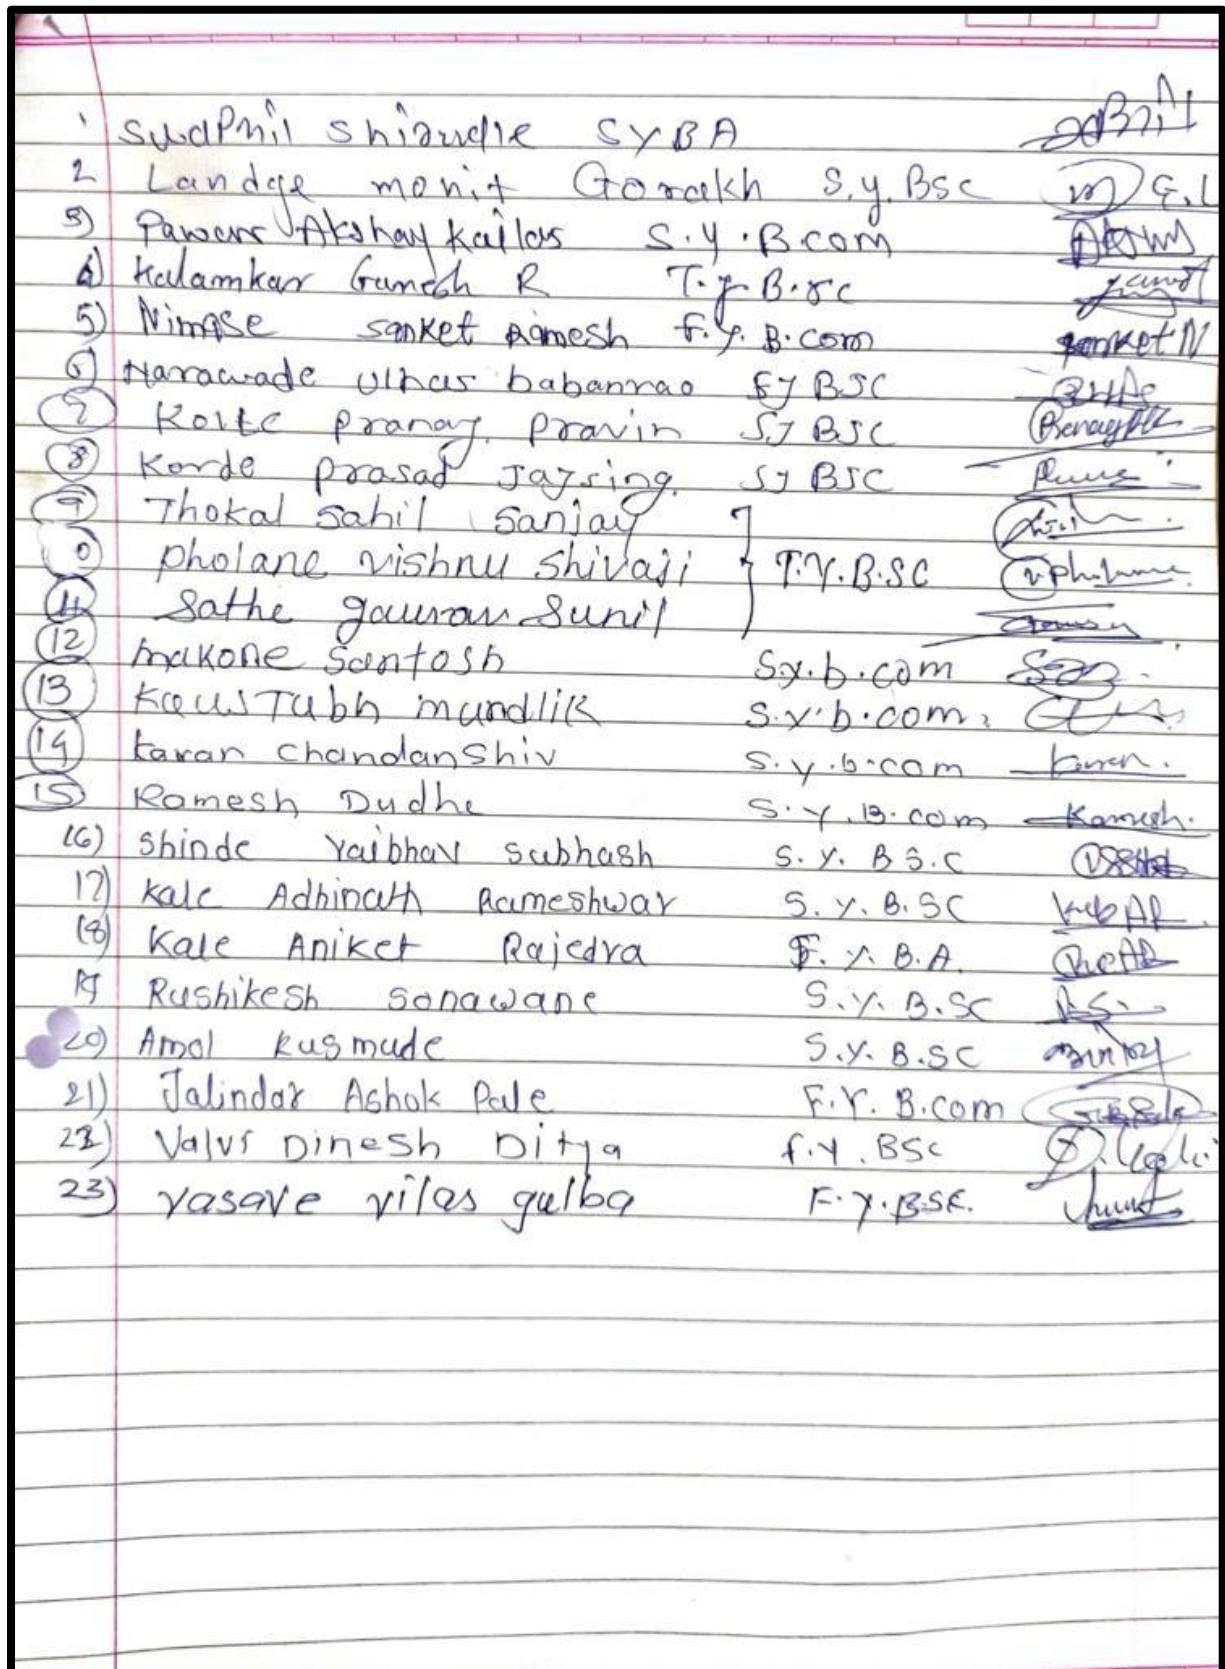 1 Swapnil Shirudle SYBA
2 Landge monit Gorakh S.y.BSc (m) G.L
3) Pawar Akshay Kailas S.Y.B.com
4) Kalamkar Ganesh R T.y.B.sc
5) Nimase sanket Ramesh f.y.B.com sanket N
6) Narawade Ulhas babanrao SY BSC
7 Kolte pranay. pravin SY BSC
8 Korde prasad Jaysing. SY BSC
9 Thokal Sahil Sanjay
10 pholane vishnu shivaji T.Y.B.SC
11 Sathe gaurav Sunil
12 makone Santosh S.y.b.com
13 KausTubh mundlik S.y.b.com
14 karan chandanshiv S.y.b.com karan.
15 Ramesh Dudhe S.Y.B.com Ramesh.
16) Shinde Vaibhav Subhash S.Y. B S.C
17) Kale Adhinath Rameshwar S.Y.B.SC
18) Kale Aniket Rajedra F.Y.B.A.
19 Rushikesh sonawane S.Y.B.SC
20) Amol Kusmude S.Y.B.SC
21) Jalindar Ashok Pale F.Y. B.com
22) Valvi Dinesh Ditya f.y.BSc
23) vasave vilas gulba F.Y.BSC.